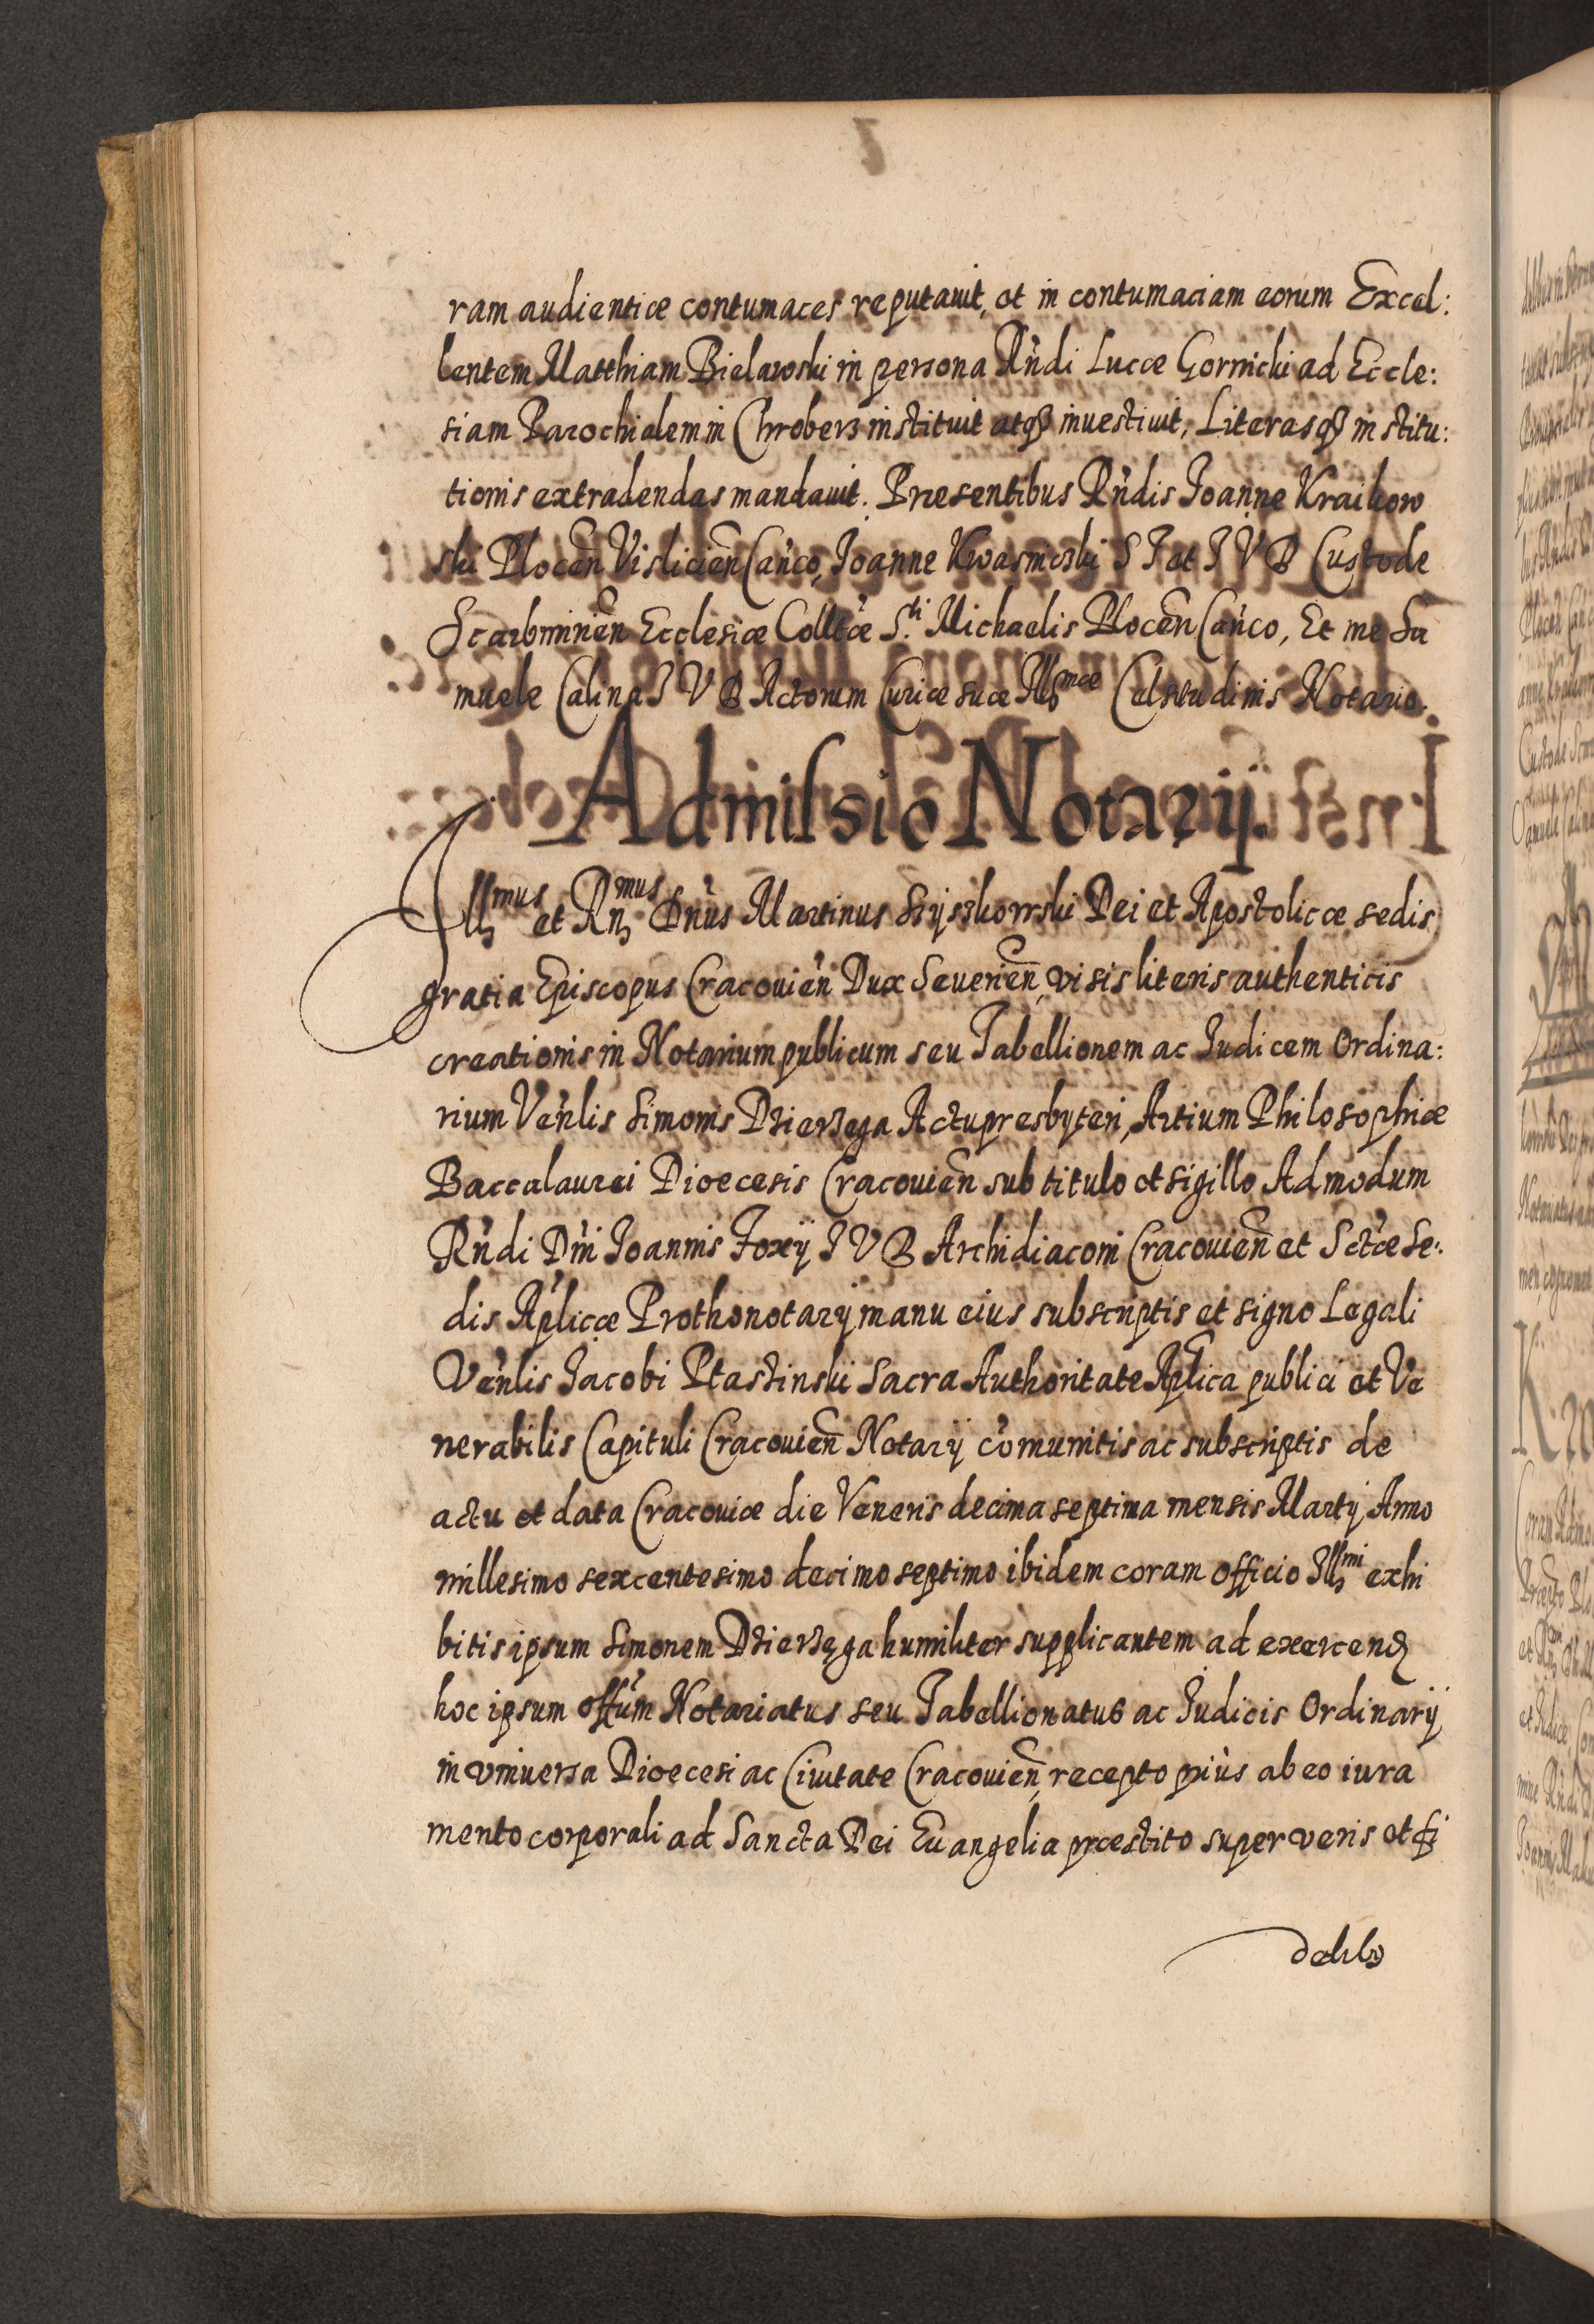 ram audientiæ contumaces reputauit, et in contumaciam eorum Excel:
lentem Matthiam Bielawski in persona Rñdi Lucæ Gornicki ad Eccle:
siam Parochialem in Chroberz instituit atqȝ inuestiuit, Literasqȝ institu:
tionis extradendas mandauit. Præsentibus Rñdis Joanne Kraikow
ski Plocen̄ Vislicien̄ Cañco, Joanne Kwasnicski S T et J V D Custode
Scarbimirien̄ Ecclesiæ Colltæ S.ti Michaelis Plocen̄ Cañco, Et me Sa
muele Calina J V D Actorum Curiæ suæ Illmæ Celsitudinis Notario.
Admissio Notarij.
Illmus et Rnmus Dñus Martinus Szyszkowski Dei et Apostolicæ sedis
gratia Episcopus Cracouien̄ Dux Seuerien̄, visis literis authenticis
creationis in Notarium publicum seu Tabellionem ac Iudicem Ordina:
rium Veñlis Simonis Dzierzega Actupresbyteri, Artium Philosophiæ
Baccalaurei Dioecesis Cracouien̄ sub titulo et sigillo Admodum
Rñdi Dñi Joannis Foxij J V D Archidiaconi Cracouien̄ et Sctæ Se:
dis Aplicæ Prothonotarij manu eius subscriptis et signo Legali
Veñlis Jacobi Ptastinski Sacra Authoritate Aplica publici et Ve
nerabilis Capituli Cracouien̄ Notarij cõmunitis ac subscriptis de
actu et data Cracouiæ die Veneris decima septima mensis Martij Anno
millesimo sexcentesimo decimo septimo ibidem coram officio Illmi exhi
bitis ipsum Simonem Dzierzęga humiliter supplicantem ad exercend
hoc ipsum offũm Notariatus seu Tabellionatus ac Iudicis Ordinarij
in vniuersa Dioecesi ac Ciuitate Cracouien̄, recepto priùs ab eo iura
mento corporali ad Sancta Dei Euangelia præstito super veris et fi
delib9